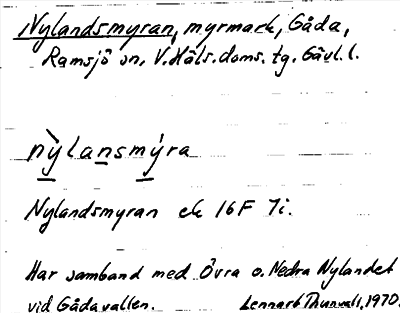 Nylandsmyran, myrmark, Gåda,
Ramsjö sn, V. Häls. doms. tg. Gävl. l.
nỳlansmýra
Nylandsmyran ek 16F 7i.
Har samband med Övra o. Nedra Nylandet
vid Gådavallen. Lennart Thunvall, 1970.